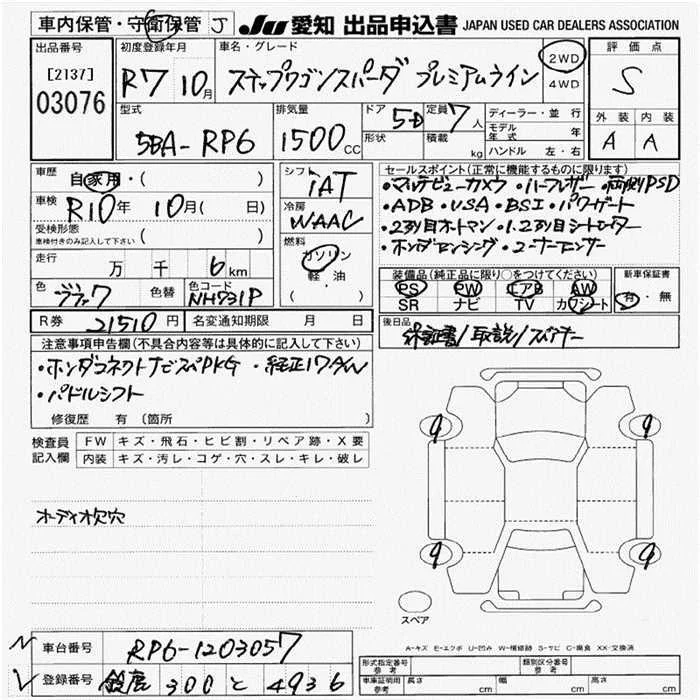 車内保管・守衛保管 J JU 愛知 出品申込書 JAPAN USED CAR DEALERS ASSOCIATION
出品番号 初度登録年月 車名・グレード 評価点
[2137]
03076
R7 10月 ステップワゴンスパーダ プレミアムライン 2WD 4WD S
型式 排気量 ドア 5D 定員 7人 ディーラー・並行 外装 内装
形状 積載 kg モデル年式 年
5BA-RP6 1500CC ハンドル 左・右 A A
車歴 自家用・( ) シフト iAT セールスポイント(正常に機能するものに限ります)
車検 R10年 10月( 日) 冷房 WAAC ・マルチビューカメラ ・ハーフレザー ・両側PSD
・ADB ・USA ・BSI ・パワーゲート
受検形態 ( )
車検付きのみ記入して下さい
燃料 ガソリン 軽・油 ( ・ )
・2列目オットマン ・1.2列目シートヒーター
・ホンダセンシング ・コーナーセンサー
走行 万 千 6km
装備品(純正品に限り○をつけてください) 新車保証書
色 ブラック 色替 色コード NH731P PS PW エアB AW 有・無
SR ナビ TV カワシート
R券 21510円 名変通知期限 月 日 後日品 保証書/取説/スペアキー
注意事項申告欄(不具合内容等は具体的に記入して下さい)
・ホンダコネクトナビスペPKG ・純正17AW
・パドルシフト
修復歴 有 (箇所 )
検査員記入欄 FW キズ・飛石・ヒビ割・リペア跡・X要
内装 キズ・汚レ・コゲ・穴・スレ・キレ・破レ
オーディオ欠穴
9 9
9 9
スペア
車台番号 RP6-1203057
A-キズ E-エクボ U-凹み W-補修跡 S-サビ C-腐食 XX-交換済
登録番号 鈴鹿 300 と 4936
形式指定番号 参考 類別区分番号 参考
車庫証明用 参考 長さ cm 幅 cm 高さ cm